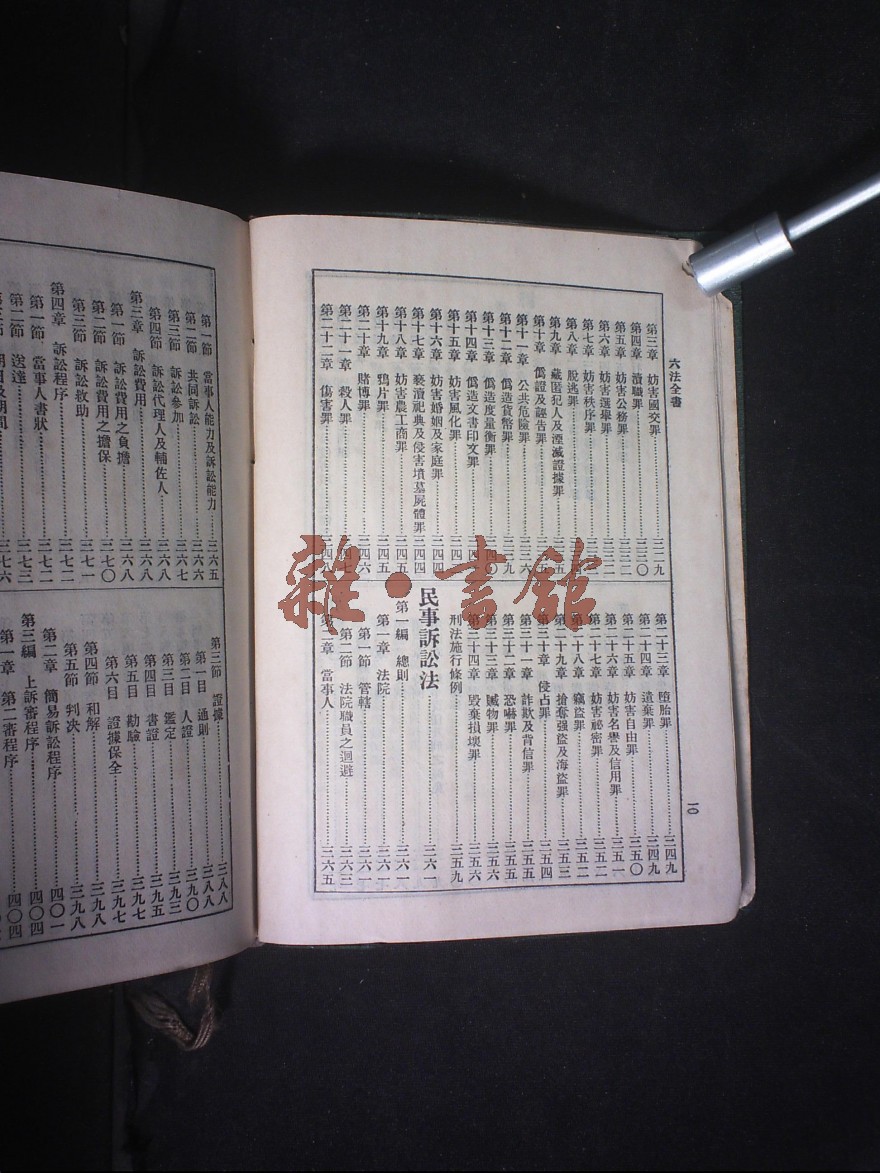 六法全書
第三章 妨害國交罪……三二九
第四章 瀆職罪……三三〇
第五章 妨害公務罪……三三二
第六章 妨害選舉罪……三三二
第七章 妨害秩序罪……三三三
第八章 脫逃罪……
第九章 藏匿犯人及湮滅證據罪……三三五
第十章 僞證及誣告罪……三三五
第十一章 公共危險罪……三三六
第十二章 僞造貨幣罪……三三九
第十三章 僞造度量衡罪……三四〇
第十四章 僞造文書印文罪……三四一
第十五章 妨害風化罪……
第十六章 妨害婚姻及家庭罪……
第十七章 褻瀆祀典及侵害墳墓屍體罪……三四四
第十八章 妨害農工商罪……三四五
第十九章 鴉片罪……三四五
第二十章 賭博罪……三四六
第二十一章 殺人罪……三四七
第二十二章 傷害罪……三四八
第二十三章 墮胎罪……三四九
第二十四章 遺棄罪……三四九
第二十五章 妨害自由罪……三五〇
第二十六章 妨害名譽及信用罪……三五一
第二十七章 妨害祕密罪……三五二
第二十八章 竊盜罪……三五二
第二十九章 搶奪强盜及海盜罪……三五三
第三十章 侵占罪……三五四
第三十一章 詐欺及背信罪……三五五
第三十二章 恐嚇罪……三五五
第三十三章 贓物罪……三五六
第三十四章 毀棄損壞罪……三五六
刑法施行條例……三五九
民事訴訟法……三六一
第一編 總則……三六一
第一章 法院……三六一
第一節 管轄……三六一
第二節 法院職員之迴避……三六三
第二章 當事人……三六五
一〇
第一節 當事人能力及訴訟能力……三六五
第二節 共同訴訟……三六六
第三節 訴訟參加……三六七
第四節 訴訟代理人及輔佐人……三六八
第三章 訴訟費用……三六八
第一節 訴訟費用之負擔……三六八
第二節 訴訟費用之擔保……三七〇
第三節 訴訟救助……三七一
第四章 訴訟程序……三七二
第一節 當事人書狀……三七二
第二節 送達……三七三
第三節 期日及期間……三七六
第三節 證據……三八八
第一目 通則……三八八
第二目 人證……三九〇
第三目 鑑定……三九三
第四目 書證……三九五
第五目 勘驗……三九七
第六目 證據保全……三九七
第四節 和解……三九八
第五節 判決……三九八
第二章 簡易訴訟程序……四〇一
第三編 上訴審程序……四〇四
第一章 第二審程序……四〇四
雜·書館